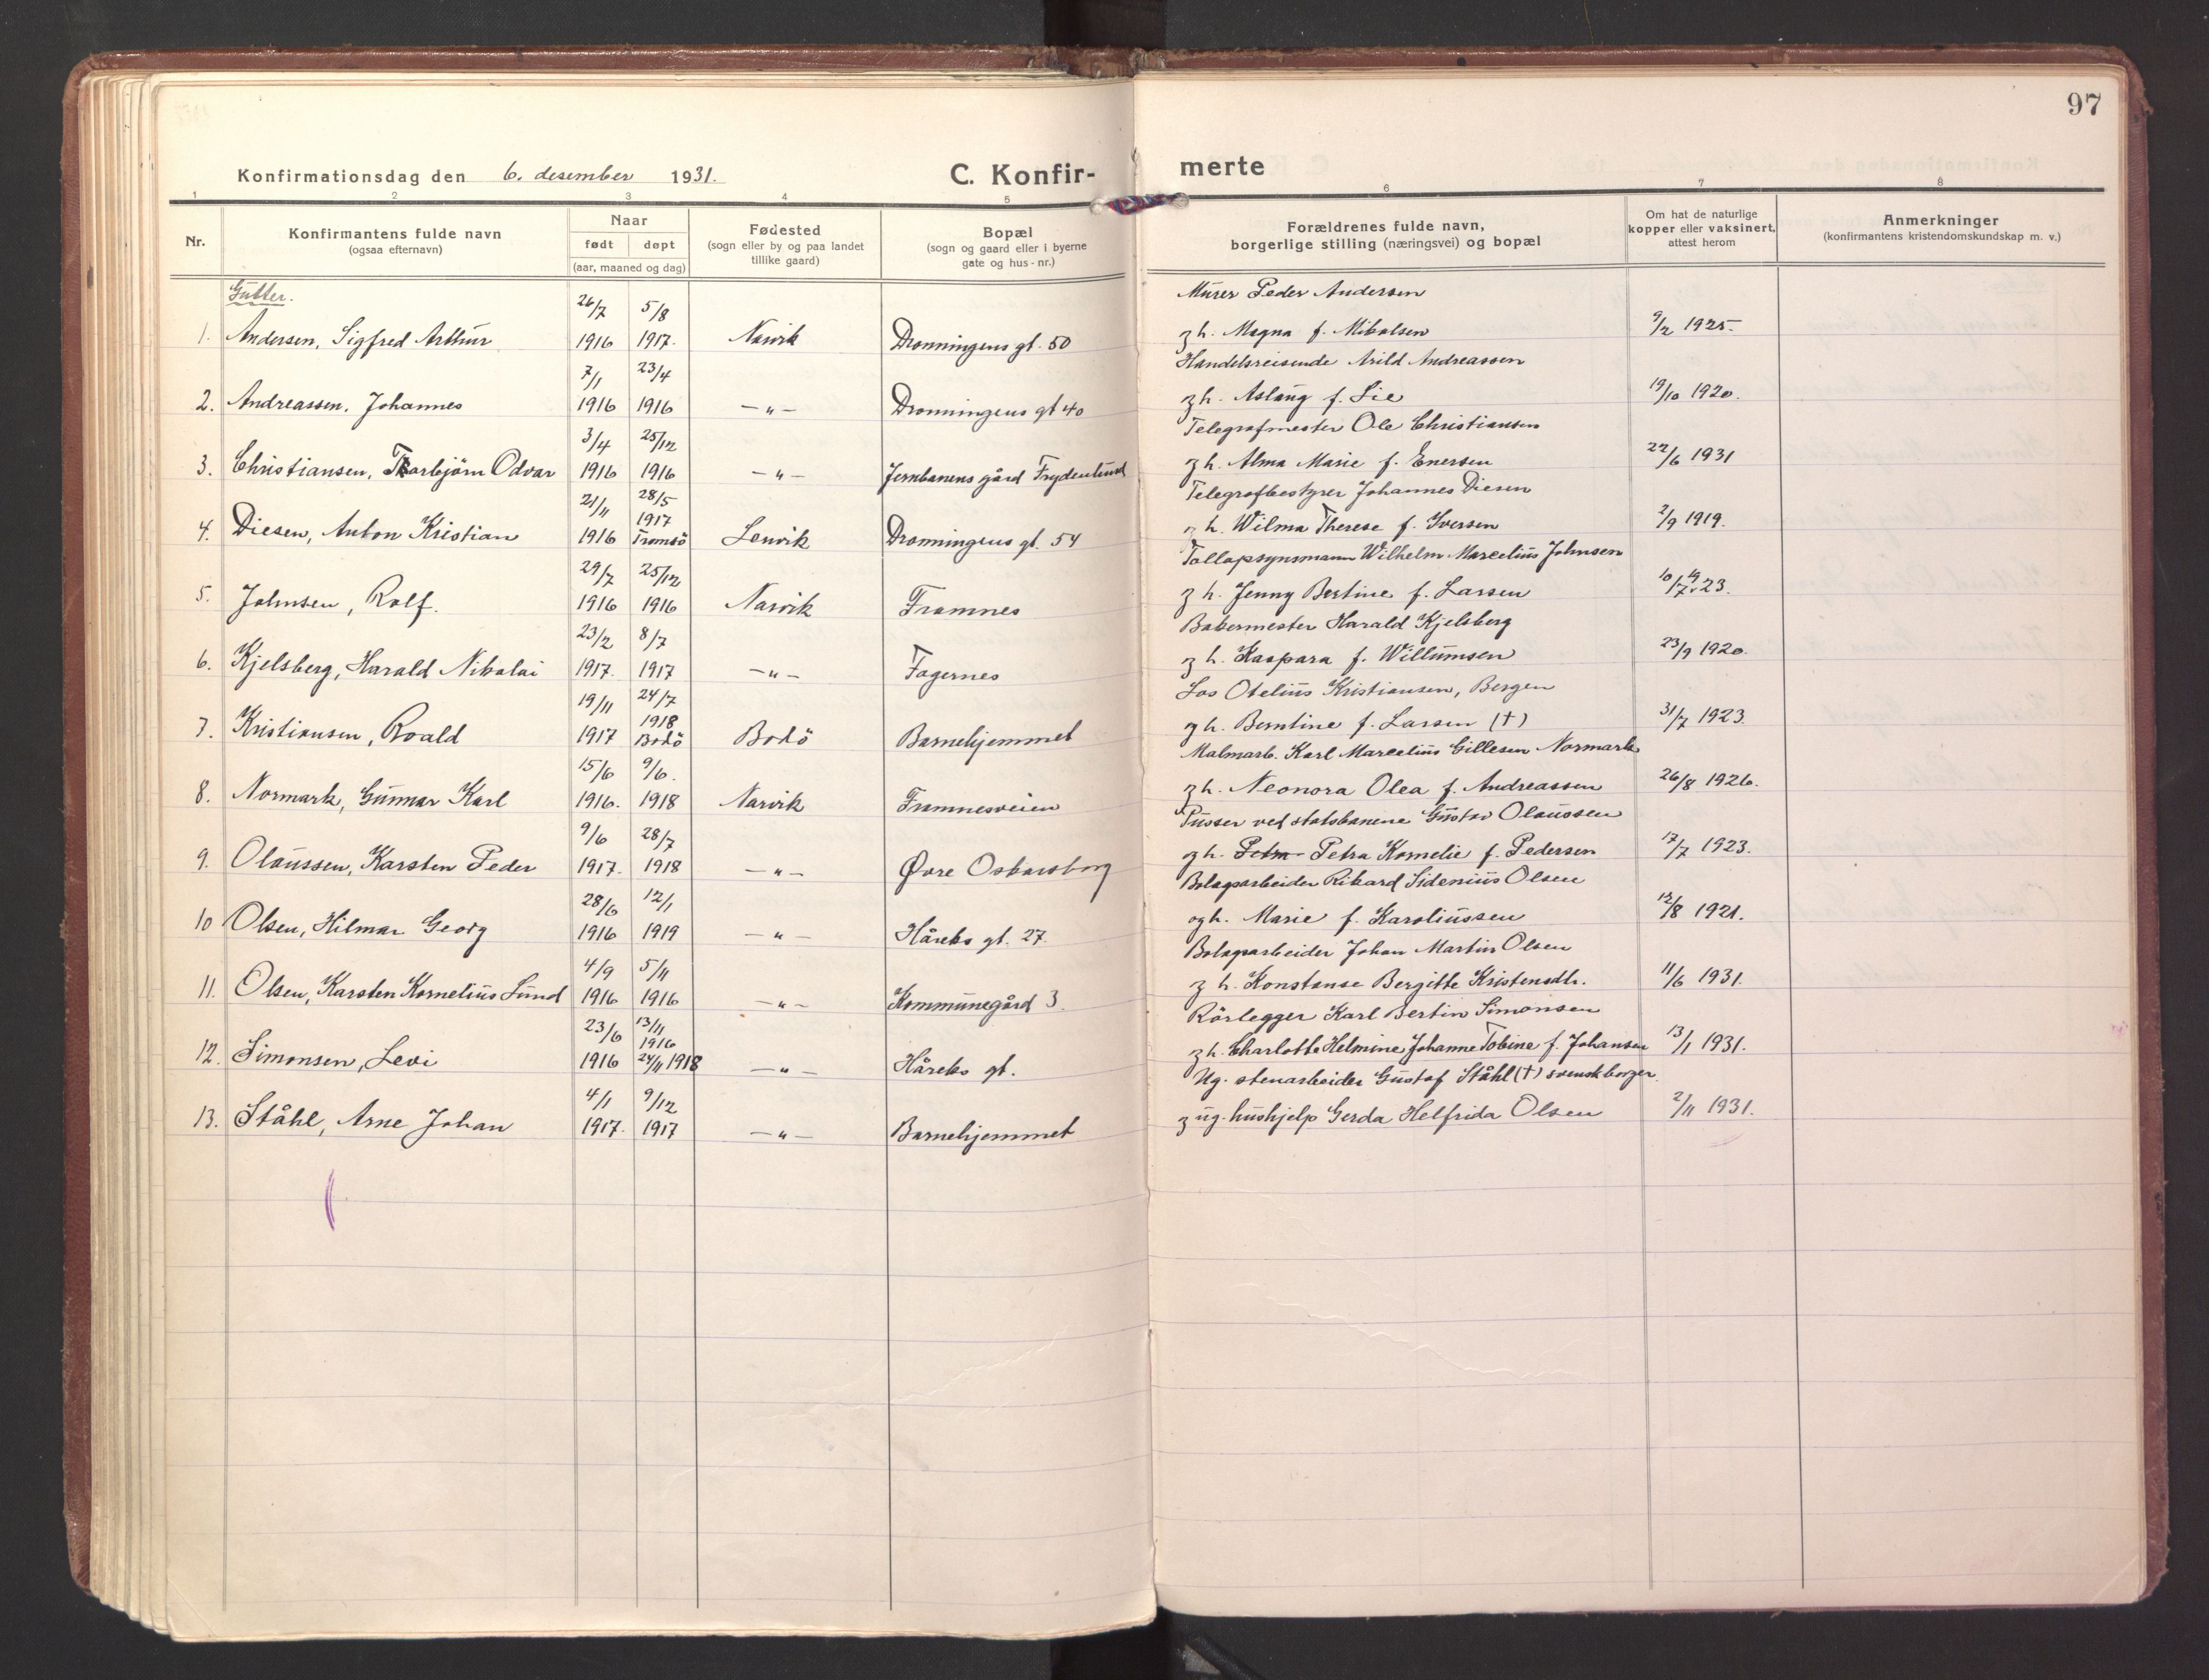 97
Konfirmationsdag den 6. desember 1931. C. Konfir- merte
1 2 3 4 5 6 7 8
Nr. Konfirmantens fulde navn (ogsaa efternavn) Naar født døpt (aar, maaned og dag) Fødested (sogn eller by og paa landet tillike gaard) Bopæl (sogn og gaard eller i byerne gate og hus-nr.) Forældrenes fulde navn, borgerlige stilling (næringsvei) og bopæl Om hat de naturlige kopper eller vaksinert, attest herom Anmerkninger (konfirmantens kristendomskundskap m. v.)
Gutter.
26/7 5/8 Murer Peder Andersen
1. Andersen, Sigfred Arthur 1916 1917. Narvik Dronningens gt. 50 og h. Magna f. Nikolsen 9/2 1925.
7/1 23/4 Handelsreisende Arild Andreassen
2. Andreassen, Johannes 1916 1916 —"— Dronningens gt 40 og h. Aslaug f. Lie 19/10 1920.
3/4 25/12 Telegrafmester Ole Christiansen
3. Christiansen, Thorbjörn Odvar 1916 1916 —"— Jernbanens gård Frydenlund og h. Alma Marie f. Enersen 22/6 1931
21/11 28/5 1917 Telegrafbestyrer Johannes Diesen
4. Diesen, Anton Kristian 1916 Tromsö Lenvik Dronningens gt. 54 og h. Wilma Therese f. Iversen 2/9 1919.
29/7 25/12 Tollopsynsmann Wilhelm Marcelius Johnsen
5. Johnsen, Rolf. 1916 1916 Narvik Framnes og h. Jenny Bertine f. Larsen 10/7 1923.
23/2 8/7 Bakermester Harald Kjelsberg
6. Kjelsberg, Harald Nikolai 1917. 1917 —"— Fagernes og h. Kaspara f. Willumsen 23/9 1920.
19/11 24/7 1918 Los Otelius Kristiansen, Bergen
7. Kristiansen, Roald 1917 Bodö Bodö Barnehjemmet og h. Berntine f. Larsen (†) 31/7 1923.
15/6 9/6. Malmarb. Karl Marcelius Gillesen Normark
8. Normark, Gunnar Karl 1916. 1918 Narvik Framnesveien og h. Neonora Olea f. Andreassen 26/8 1926.
9/6 28/7 Pusser ved statsbanene Gustav Olaussen
9. Olaussen, Karsten Peder 1917. 1918 —"— Øvre Oskarsborg og h. Petra Petra Kornelie f. Pedersen 17/7 1923.
28/6 12/1 Bolagsarbeider Rikard Sidenius Olsen
10 Olsen, Hilmar Georg 1916 1919 —"— Håreks gt. 27. og h. Marie f. Karoliussen 12/8 1921.
4/9 5/11 Bolagsarbeider Johan Martin Olsen
11. Olsen, Karsten Kornelius Lund 1916 1916 —"— Kommunegård 3. og h. Konstanse Bergitte Kristensdtr. 11/6 1931.
23/6 13/11 1916 Rörlegger Karl Bertin Simonsen
12. Simonsen, Levi 1916 24/11 1918 —"— Håreks gt. og h. Charlotte Helmine Johanne Tobine f. Johansen 13/1 1931.
4/1 9/12 Ug. stenarbeider Gustaf Ståhl (†) svensk borger.
13. Ståhl, Arne Johan 1917. 1917 —"— Barnehjemmet og ug. hushjelp Gerda Helfrida Olsen 2/11 1931.